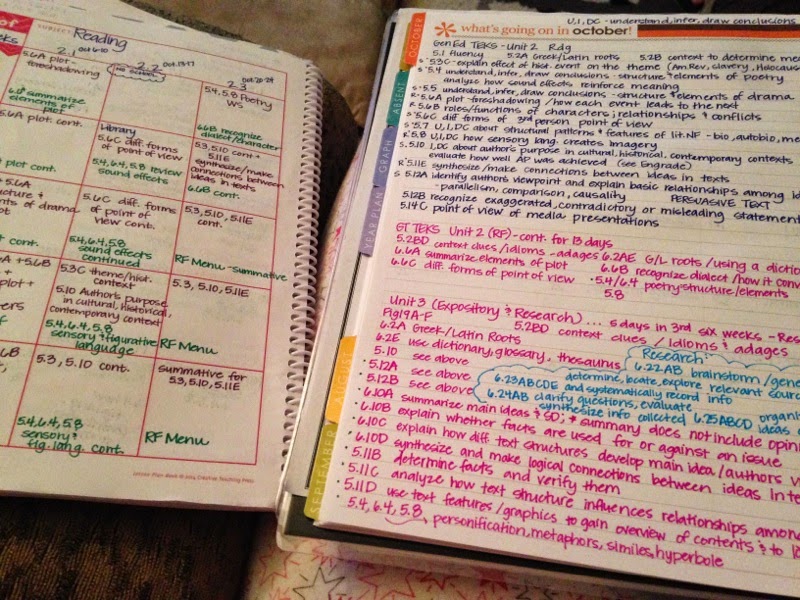 of
SUBJECT
Reading
2.1 out 6-10
5.6A plot - foreshadowing
6.8 summarize
elements of plot
2.2 Oct.13-17
NO SCHOOL
2.3 Oct. 20-24
5.4, 5.8 Poetry
WS
6.6B recognize
dialect/character
6A plot cont.
plot cont.
Library
5.6C diff. forms
of point of view
5.4, 6.4, 5.8 review
sound effects
5.3, 5.10 cont +
5.11E
synthesize/make
connections between
ideas in texts
6.6B cont.
+ 5.6A
ucture &
ents of drama
cont.
5.6C diff. forms
of point of
view cont.
5.4, 6.4, 5.8
sound effects
continued
5.3, 5.10, 5.11E
RF Menu - summative
A +5.6B
+
plot +
ters
5.3C theme/hist.
context
5.10 Author's purpose
in cultural, historical,
contemporary context
5.4, 6.4, 5.8
sensory & figurative
language
5.3, 5.10, 5.11E
RF Menu
5.6B
5.3, 5.10 cont.
5.4, 6.4, 5.8
sensory &
fig. lang. cont.
summative for
5.3, 5.10, 5.11E
RF Menu
Lesson Plan Book © 2014 Creative Teaching Press
OCTOBER
ABSENT
GRAPH
YEAR PLAN
AUGUST
SEPTEMBER
U, I, DC - understand, infer, draw conclusions
what's going on in october!
Gen Ed TEKS - Unit 2 Rdg
5.1 fluency 5.2A Greek/Latin roots 5.2B context to determine me
S 5.3C - explain effect of hist. event on the theme (Am. Rev, slavery, Holocaus
S 5.4 understand, infer, draw conclusions - structure & elements of poetry
analyze how sound effects reinforce meaning
S 5.5 understand, infer, draw conclusions - structure & elements of drama
R 5.6A plot - foreshadowing / how each event leads to the next
R 5.6B roles/functions of characters; relationships & conflicts
S 5.6C diff forms of 3rd person point of view
S 5.7 U, I, DC about structural patterns & features of lit. NF - bio, autobio, me
R 5.8 U, I, DC how sensory lang. creates imagery
S 5.10 I, DC about author's purpose in cultural, historical, contemporary contexts
evaluate how well AP was achieved (see Engrade)
R 5.11E synthesize / make connections between ideas in texts
S 5.12A identify author's viewpoint and explain basic relationships among id
- parallelism, comparison, causality PERSUASIVE TEXT
5.12B recognize exaggerated, contradictory or misleading statement
5.14C point of view of media presentations
GT TEKS Unit 2 (RF) - cont. for 13 days
5.2BD context clues/idioms - adages 6.2AE G/L roots / using a diction
6.6A summarize elements of plot 6.6B recognize dialect / how it conv
6.6C diff. forms of point of view 5.4/6.4 poetry-structure/elements
5.8
Unit 3 (Expository & Research) ... 5 days in 3rd six weeks - Res
Fig 19A-F
6.2A Greek/Latin Roots 5.2BD context clues / Idioms & adages
6.2E use dictionary, glossary, thesaurus
5.10 see above
5.12A see above
5.12B see above
Research:
6.22AB brainstorm / gene
6.23ABCDE determine, locate, explore relevant sourc
and systematically record info
6.24AB clarify questions, evaluate
synthesize info collected 6.25ABCD organiz
ideas
6.10A summarize main ideas & SD; & summary does not include opini
6.10B explain whether facts are used for or against an issue
6.10C explain how diff text structures develop main idea/authors v
6.10D synthesize and make logical connections between ideas in te
5.11B determine facts and verify them
5.11C analyze how text structure influences relationships among
5.11D use text features/graphics to gain overview of contents & to lo
5.4, 6.4, 5.8
personification, metaphors, similes, hyperbole